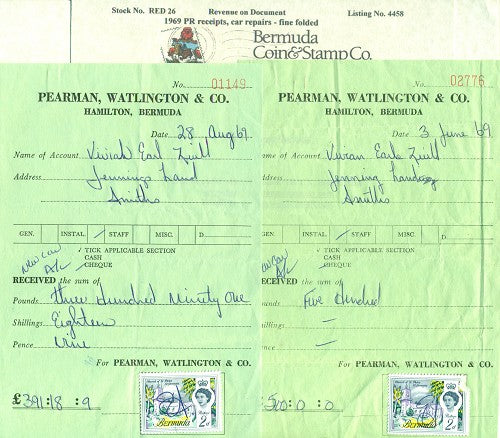 Stock No. RED 26 Revenue on Document Listing No. 4458
1969 PR receipts, car repairs - fine folded
Bermuda
Coin & Stamp Co.
No. 01149
PEARMAN, WATLINGTON & CO.
HAMILTON, BERMUDA
Date 28 Aug 69
Name of Account Vivian Earl Zuill
Address Jennings Land
Smiths
GEN. INSTAL / STAFF MISC. D
✓ TICK APPLICABLE SECTION
CASH
CHEQUE
New Car
A/c
RECEIVED the sum of
Pounds three Hundred Ninety One
Shillings Eighteen
Pence Nine
For PEARMAN, WATLINGTON & CO.
£ 391:18:9
Bermuda 2d
No. 02776
PEARMAN, WATLINGTON & CO.
HAMILTON, BERMUDA
Date 3 June 69
Name of Account Vivian Earle Zuill
Address Jenning Land
Smiths
GEN. INSTAL / STAFF MISC. D
✓ TICK APPLICABLE SECTION
CASH
CHEQUE
New Car
A/c
RECEIVED the sum of
Pounds Five Hundred
Shillings —
Pence —
For PEARMAN, WATLINGTON & CO.
500:0:0
Bermuda 2d